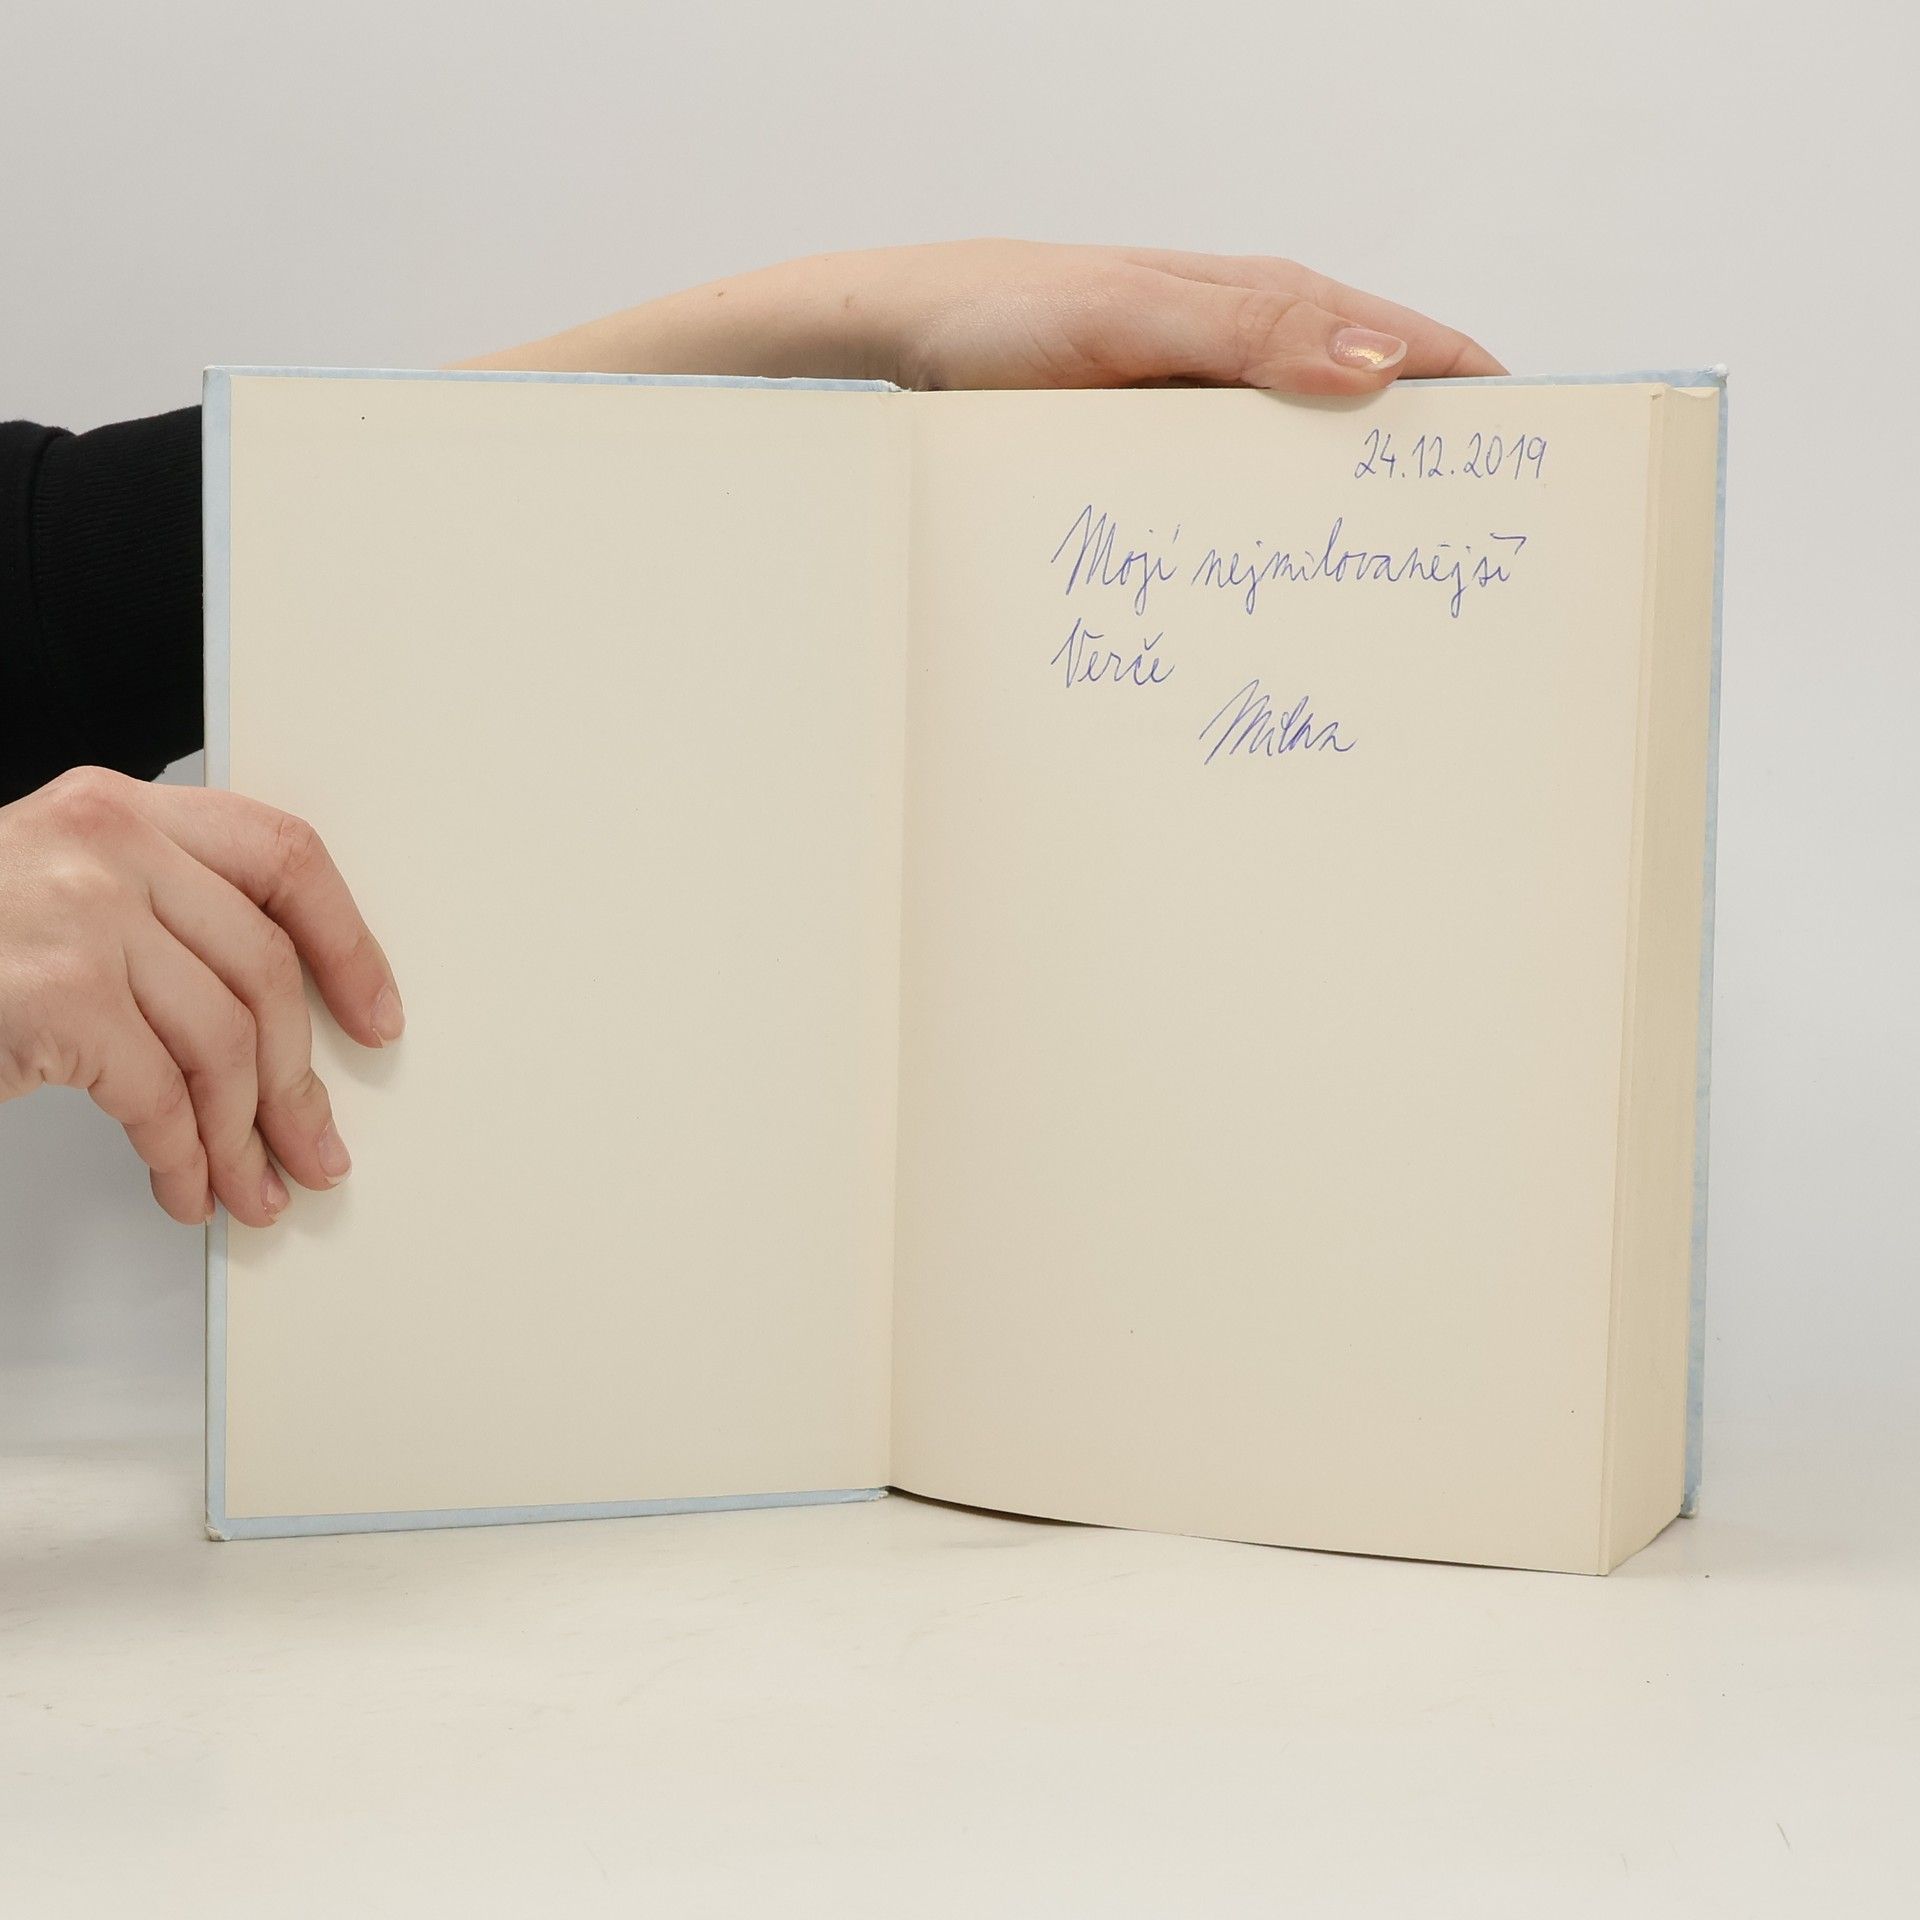 24.12.2019
Mojí nejmilovanější
Verče
Milan